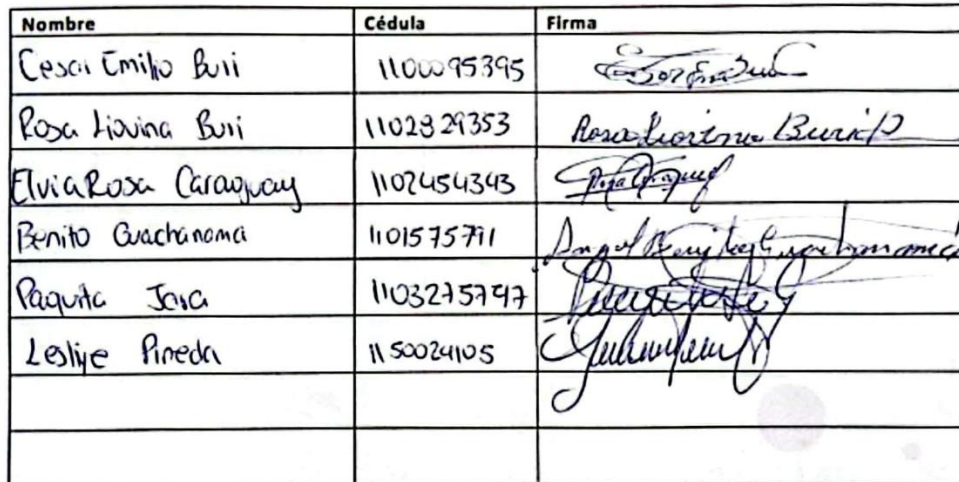 Nombre Cédula Firma
Cesar Emilio Buri 1100095395
Rosa Liovina Buri 1102829353 Rosa Liovina Buri P
Elvia Rosa Caraguay 1102454343 Rosa Caraguay
Benito Guachanama 1101575791 Angel Benito Guachanamá
Paquita Jara 1103275747
Leslye Pineda 1150024105